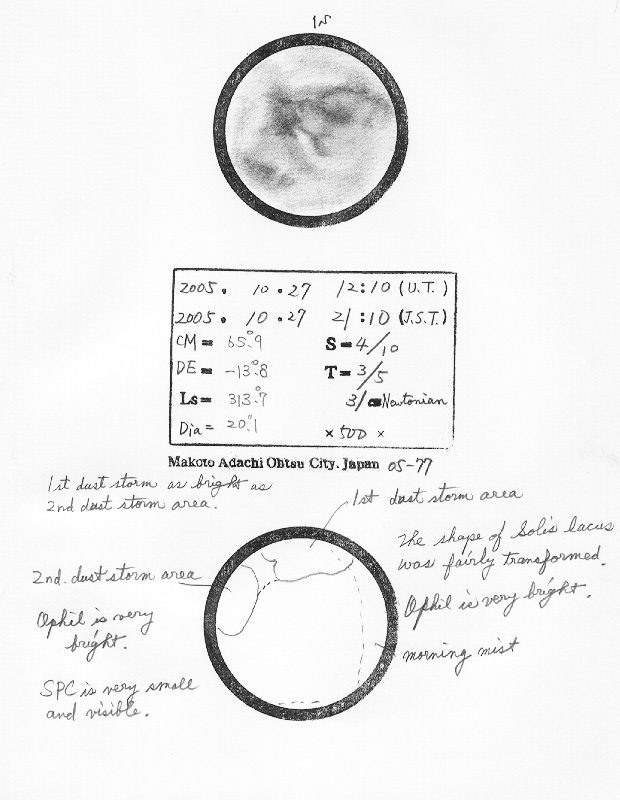 2005. 10.27 12:10 (U.T.)
2005. 10.27 21:10 (J.S.T.)
CM= 65°.9 S=4/10
DE= -13°.8 T=3/5
Ls= 313°.7 31 Newtonian
Dia= 20".1 ×500 ×
Makoto Adachi Ohtsu City. Japan 05-77
1st dust storm as bright as
2nd dust storm area.
1st dust storm area
The shape of Solis lacus
was fairly transformed.
2nd. dust storm area
Ophil is very bright.
Ophil is very
bright.
morning mist
SPC is very small
and visible.